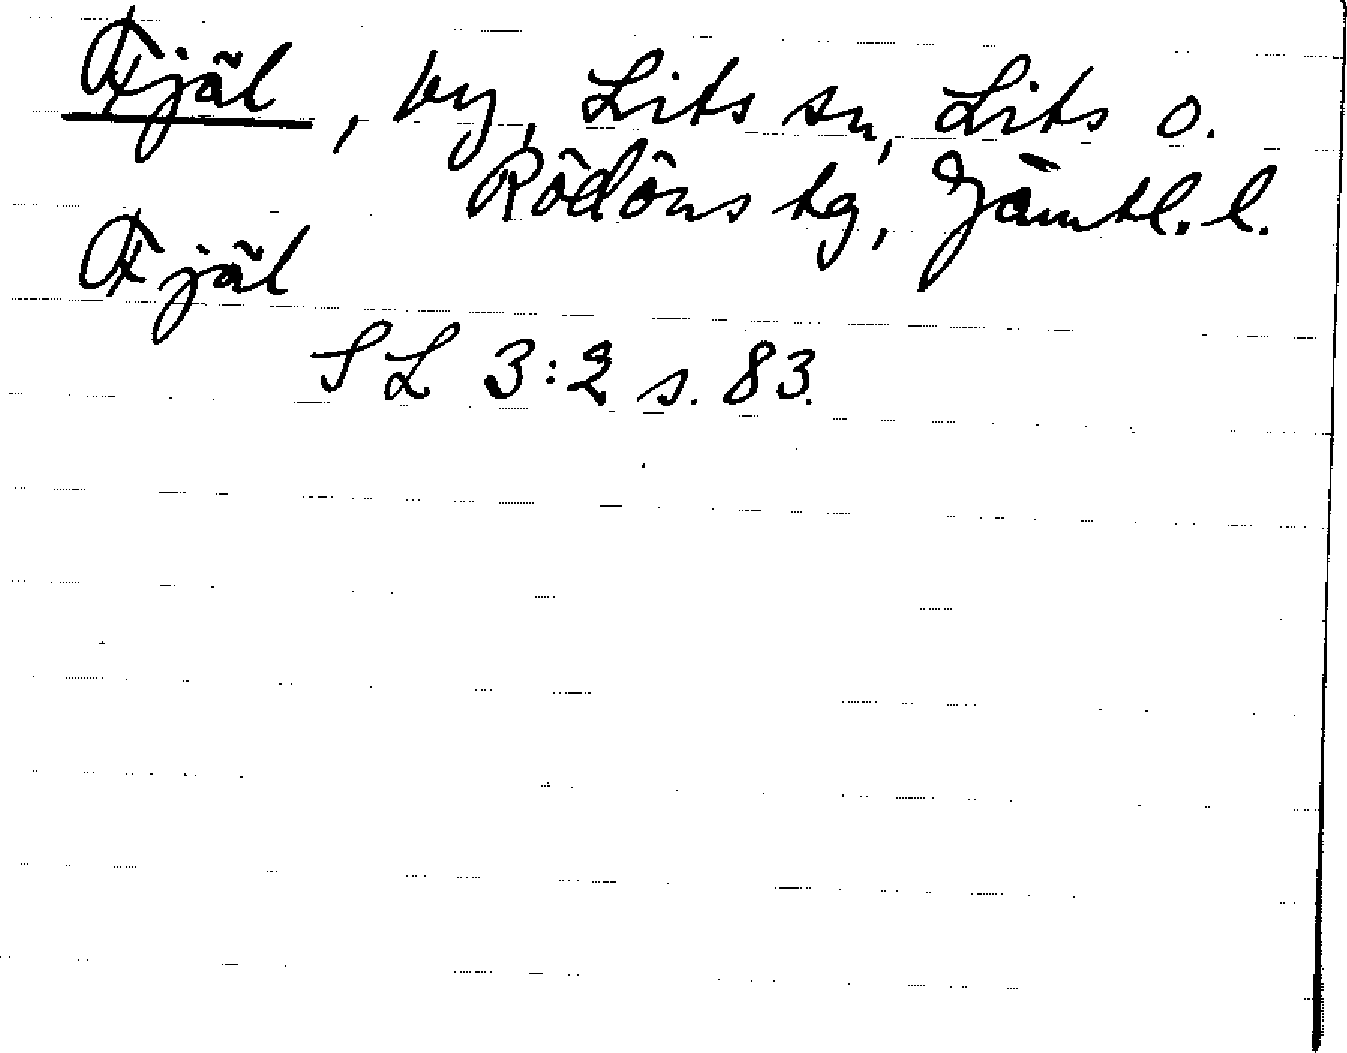 Fjäl, by, Lits sn, Lits o.
Rödöns tg, Jämtl. l.
Fjäl
SL 3:2 s. 83.